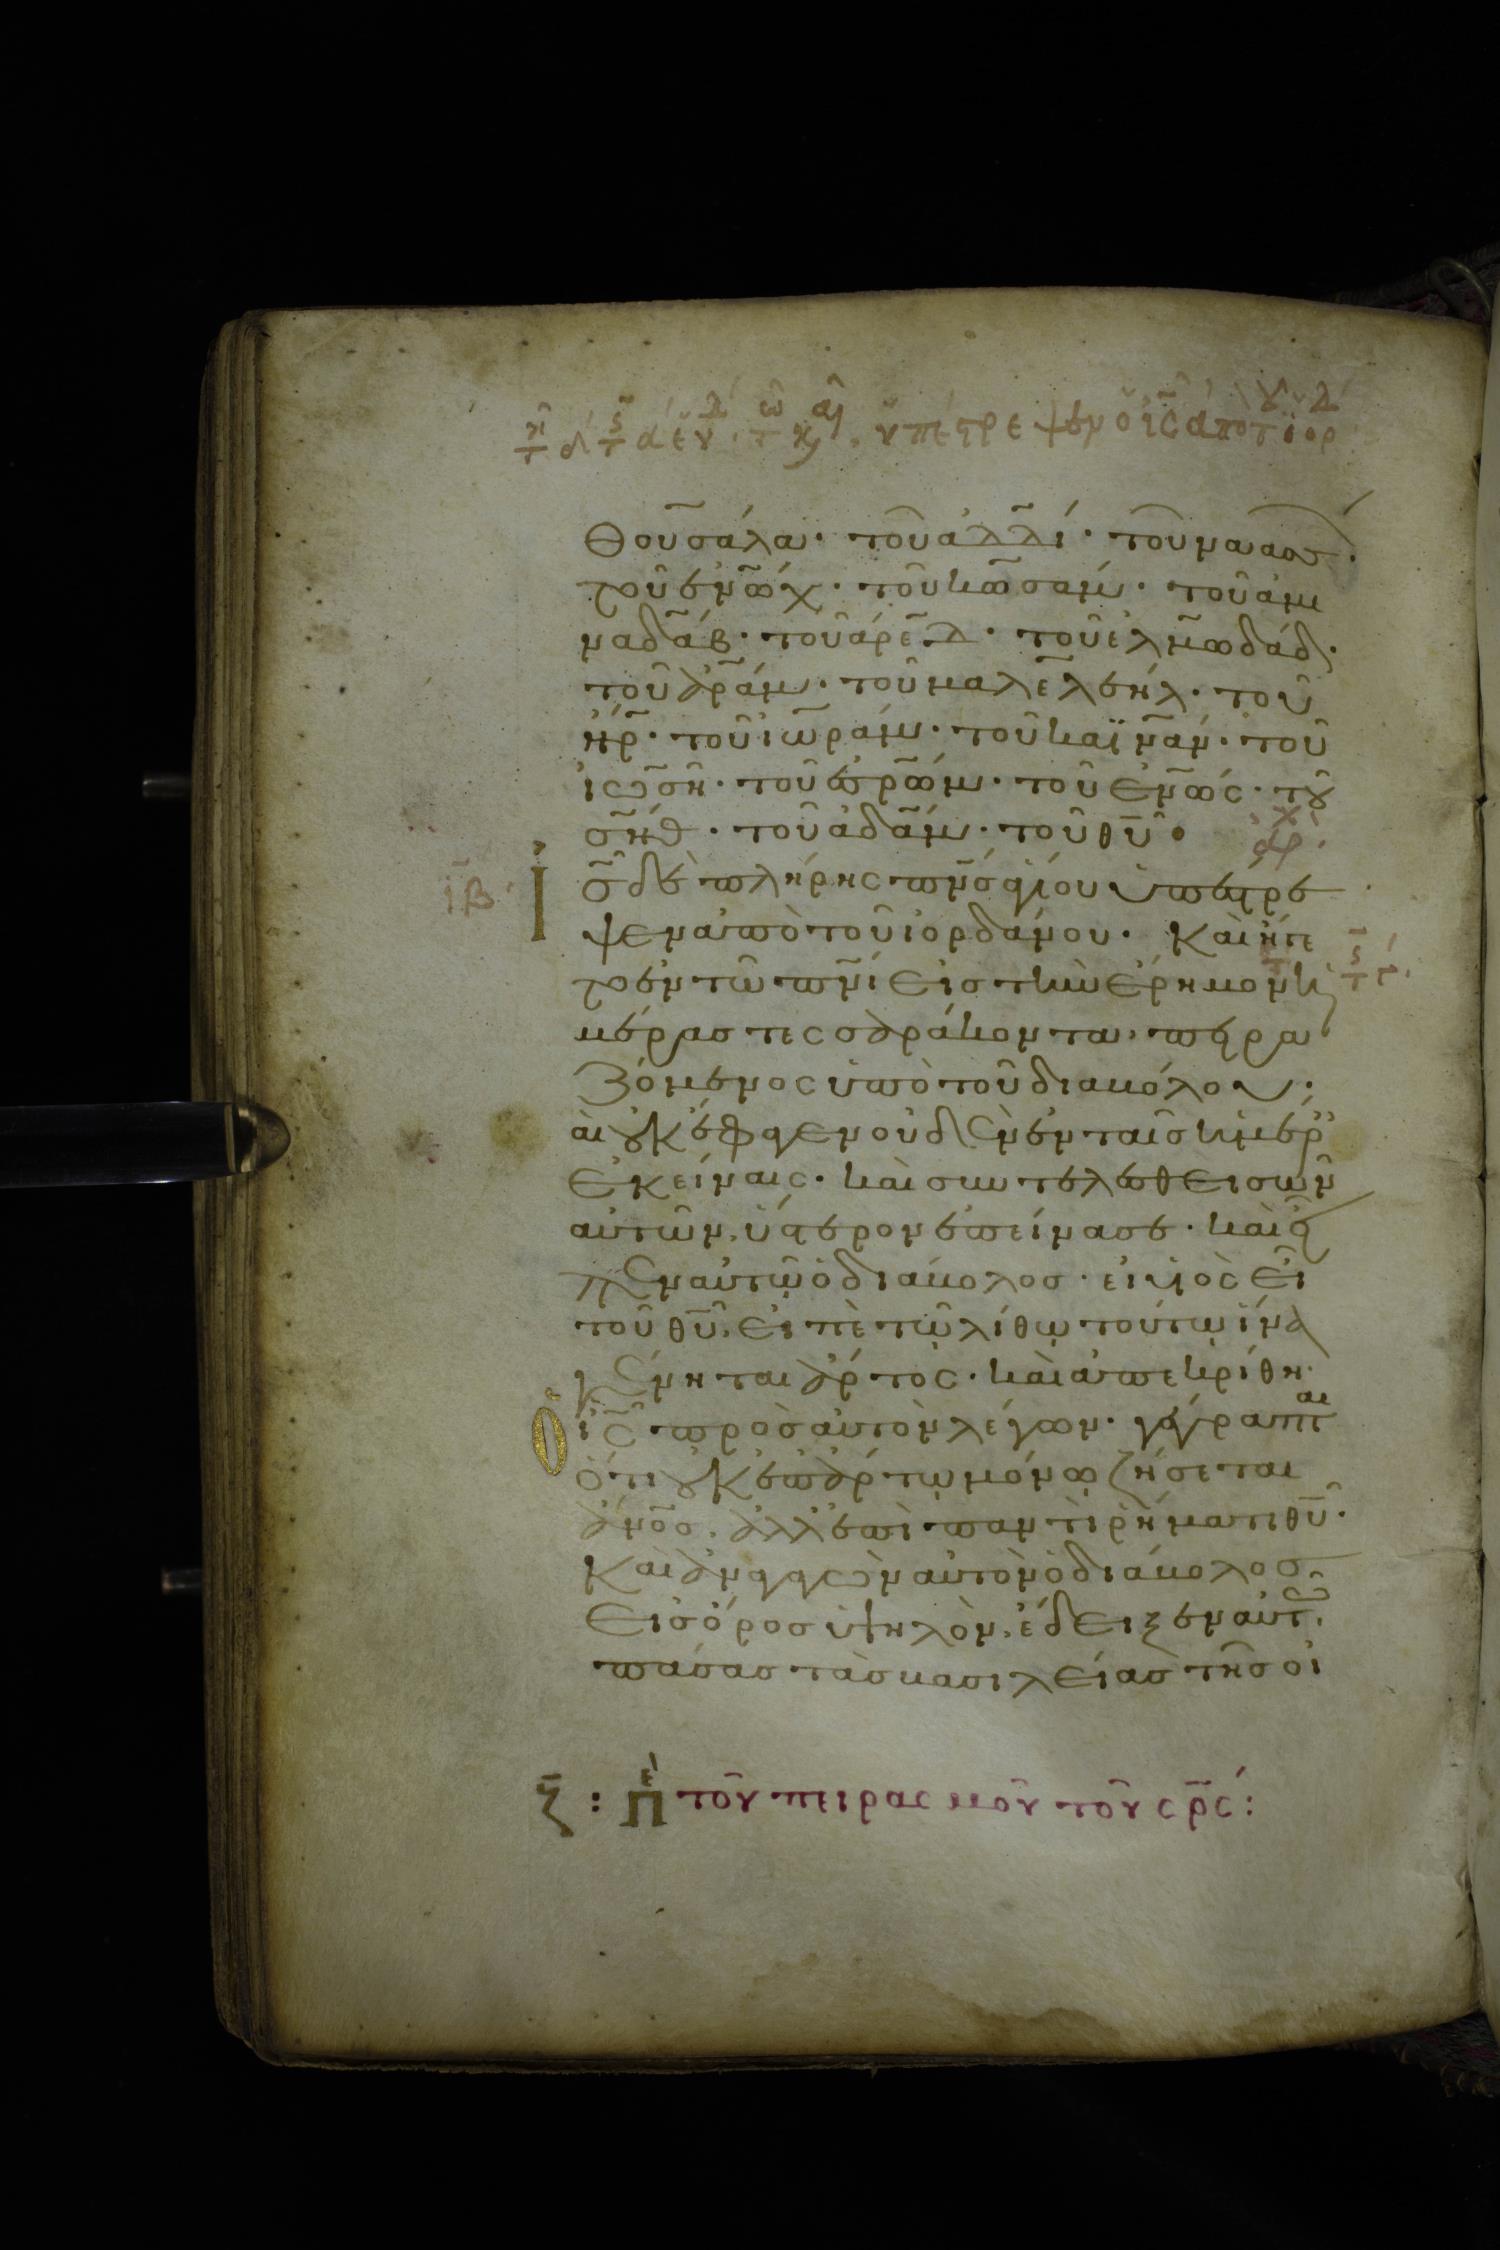 κυ δ τ αευ · τ κ · ὑπέστρεψεν ὁ ις ἀπὸ τ ιορδ
θουσάλα· τοῦ ἀδδί· τοῦ ναασσ·
τοῦ ἐνώχ· τοῦ κωσάμ· τοῦ ἀμι
ναδάβ· τοῦ ἀρέδ· τοῦ ἐλμωδάδ·
τοῦ ἀράμ· τοῦ μαλελεήλ· τοῦ
ἤρ· τοῦ ἰωράμ· τοῦ καϊνάν· τοῦ
ἰωσῆ· τοῦ ἐσρώμ· τοῦ ἐνώς· τοῦ
σήθ· τοῦ ἀδάμ· τοῦ θῦ· ἀρχ
ιβ Ἰς δὲ πλήρης πνς ἁγίου ὑπέστρε
ψεν ἀπὸ τοῦ ἰορδάνου· καὶ ἤγε
το ἐν τῶ πνι εἰς τὴν ἔρημον ἡ
μέρας τεσσαράκοντα, πειρα
ζόμενος ὑπὸ τοῦ διαβόλου·
καὶ οὐκ ἔφαγεν οὐδὲν ἐν ταῖς ἡμέρ
ἐκείναις· καὶ συντελεσθεισῶν
αὐτῶν, ὕστερον ἐπείνασε· καὶ εἶ
πεν αὐτῷ ὁ διάβολος· εἰ υἱὸς εἶ
τοῦ θῦ, εἰπὲ τῷ λίθῳ τούτῳ ἵνα
γένηται ἄρτος· καὶ ἀπεκρίθη
ὁ ις πρὸς αὐτὸν λέγων· γέγραπται
ὅτι οὐκ ἐπ ἄρτῳ μόνῳ ζήσεται
ἄνος, ἀλλ ἐπὶ παντὶ ῥήματι θῦ·
Καὶ ἀναγαγὼν αὐτὸν ὁ διάβολος
εἰς ὄρος ὑψηλὸν, ἔδειξεν αὐτῶ
πάσας τὰς βασιλείας τῆς οἰ
ζ : Πε τοῦ πειρασμοῦ τοῦ σρς :